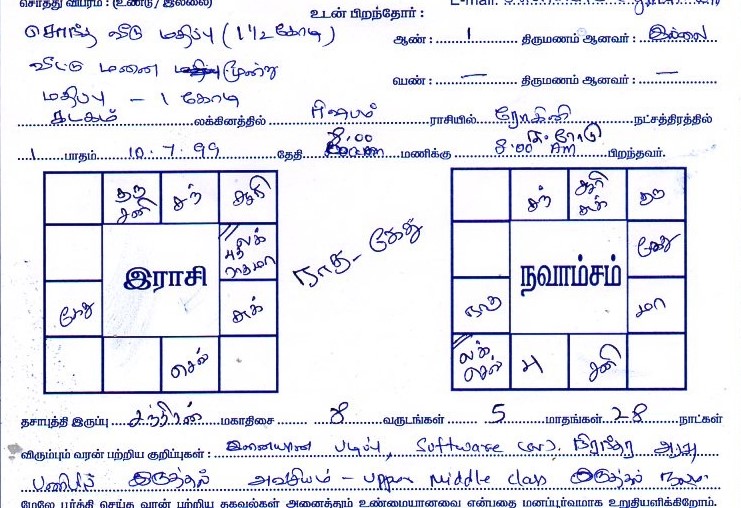 சொத்து விபரம் : (உண்டு / இல்லை)
E-mail:
உடன் பிறந்தோர் :
சொந்த வீடு மதிப்பு (1 1/2 கோடி)
ஆண் : 1 திருமணம் ஆனவர் : இல்லை
வீட்டு மனை மூன்று
பெண் : — திருமணம் ஆனவர் : —
மதிப்பு - 1 கோடி
கடகம் லக்கினத்தில் ரிஷபம் ராசியில் ரோகினி நட்சத்திரத்தில்
1 பாதம் 10.7.99 தேதி 8:00 மணிக்கு 8:00 AM பிறந்தவர்.
குரு சனி
சந்
சூரி
லக் புத ராகு மா
இராசி
கேது
சுக்
செவ்
நாக - கேது
சந்
சூரி சுக்
குரு
கேது
நவாம்சம்
ராகு
மா
லக் செவ்
பு
சனி
தசாபுத்தி இருப்பு சந்திரன் மகாதிசை 8 வருடங்கள் 5 மாதங்கள் 28 நாட்கள்
விரும்பும் வரன் பற்றிய குறிப்புகள் : இணையான படிப்பு, Software (or). மத்திய அரசு
பணியில் இருத்தல் அவசியம் - upper Middle class இருத்தல் நலம்
மேலே பூர்த்தி செய்த வரன் பற்றிய தகவல்கள் அனைத்தும் உண்மையானவை என்பதை மனப்பூர்வமாக உறுதியளிக்கிறோம்.